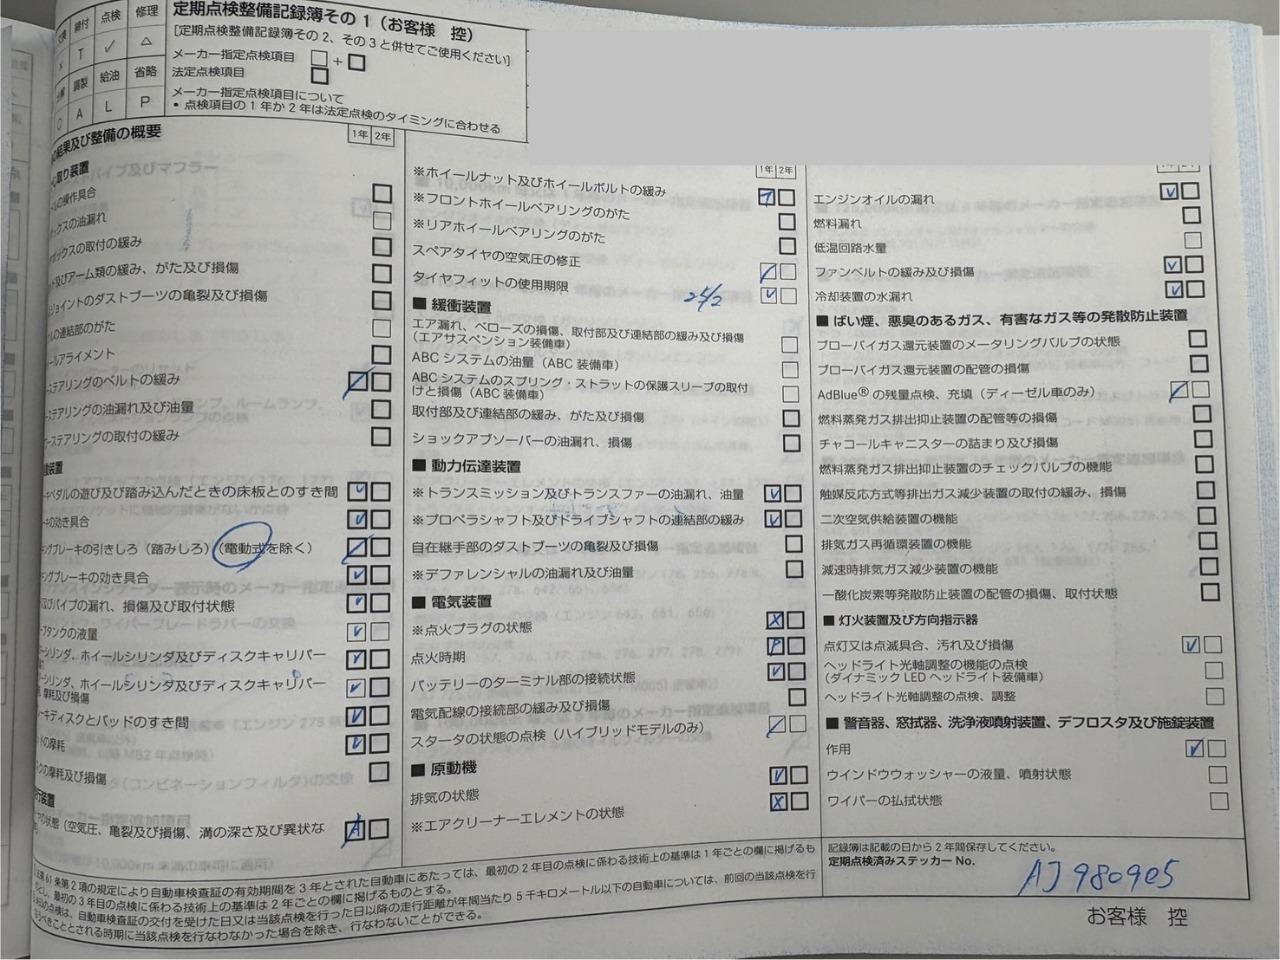 締付 点検 修理
× T ✓ △
調製 給油 省略
○ A L P
定期点検整備記録簿その1（お客様 控）
[定期点検整備記録簿その2、その3と併せてご使用ください]
メーカー指定点検項目 □+□
法定点検項目 □
メーカー指定点検項目について
• 点検項目の1年か2年は法定点検のタイミングに合わせる
の結果及び整備の概要
1年 2年
取り装置
の操作具合
ックスの油漏れ
ボックスの取付の緩み
及びアーム類の緩み、がた及び損傷
ジョイントのダストブーツの亀裂及び損傷
の連結部のがた
ールアライメント
ステアリングのベルトの緩み
ステアリングの油漏れ及び油量
ーステアリングの取付の緩み
装置
キペダルの遊び及び踏み込んだときの床板とのすき間 ✓
キの効き具合 ✓
ングブレーキの引きしろ（踏みしろ）（電動式を除く）
ングブレーキの効き具合 ✓
及びパイプの漏れ、損傷及び取付状態 ✓
ブタンクの液量 ✓
ーシリンダ、ホイールシリンダ及びディスクキャリパー ✓
ーシリンダ、ホイールシリンダ及びディスクキャリパー ✓
摩耗及び損傷
ーキディスクとパッドのすき間 ✓
ドの摩耗 ✓
クの摩耗及び損傷
行装置
の状態（空気圧、亀裂及び損傷、溝の深さ及び異状な A
1年 2年
※ホイールナット及びホイールボルトの緩み T
※フロントホイールベアリングのがた
※リアホイールベアリングのがた
スペアタイヤの空気圧の修正
タイヤフィットの使用期限 25/2 ✓
■ 緩衝装置
エア漏れ、ベローズの損傷、取付部及び連結部の緩み及び損傷
（エアサスペンション装備車）
ABC システムの油量（ABC 装備車）
ABC システムのスプリング・ストラットの保護スリーブの取付
けと損傷（ABC 装備車）
取付部及び連結部の緩み、がた及び損傷
ショックアブソーバーの油漏れ、損傷
■ 動力伝達装置
※トランスミッション及びトランスファーの油漏れ、油量 ✓
※プロペラシャフト及びドライブシャフトの連結部の緩み ✓
自在継手部のダストブーツの亀裂及び損傷
※デファレンシャルの油漏れ及び油量
■ 電気装置
※点火プラグの状態 X
点火時期 P
バッテリーのターミナル部の接続状態 ✓
電気配線の接続部の緩み及び損傷
スタータの状態の点検（ハイブリッドモデルのみ）
■ 原動機
排気の状態 ✓
※エアクリーナーエレメントの状態 X
エンジンオイルの漏れ ✓
燃料漏れ
低温回路水量
ファンベルトの緩み及び損傷 ✓
冷却装置の水漏れ ✓
■ ばい煙、悪臭のあるガス、有害なガス等の発散防止装置
ブローバイガス還元装置のメータリングバルブの状態
ブローバイガス還元装置の配管の損傷
AdBlue®の残量点検、充填（ディーゼル車のみ）
燃料蒸発ガス排出抑止装置の配管等の損傷
チャコールキャニスターの詰まり及び損傷
燃料蒸発ガス排出抑止装置のチェックバルブの機能
触媒反応方式等排出ガス減少装置の取付の緩み、損傷
二次空気供給装置の機能
排気ガス再循環装置の機能
減速時排気ガス減少装置の機能
一酸化炭素等発散防止装置の配管の損傷、取付状態
■ 灯火装置及び方向指示器
点灯又は点滅具合、汚れ及び損傷 ✓
ヘッドライト光軸調整の機能の点検
（ダイナミック LED ヘッドライト装備車）
ヘッドライト光軸調整の点検、調整
■ 警音器、窓拭器、洗浄液噴射装置、デフロスタ及び施錠装置
作用 ✓
ウインドウウォッシャーの液量、噴射状態
ワイパーの払拭状態
第61条第2項の規定により自動車検査証の有効期間を3年とされた自動車にあたっては、最初の2年目の点検に係わる技術上の基準は1年ごとの欄に掲げるも
のとし、最初の3年目の点検に係わる技術上の基準は2年ごとの欄に掲げるものとする。
の点検は、自動車検査証の交付を受けた日又は当該点検を行った日以降の走行距離が年間当たり5千キロメートル以下の自動車については、前回の当該点検を行
うべきこととされる時期に当該点検を行なわなかった場合を除き、行なわないことができる。
記録簿は記載の日から2年間保存してください。
定期点検済みステッカー No.
AJ980905
お客様 控